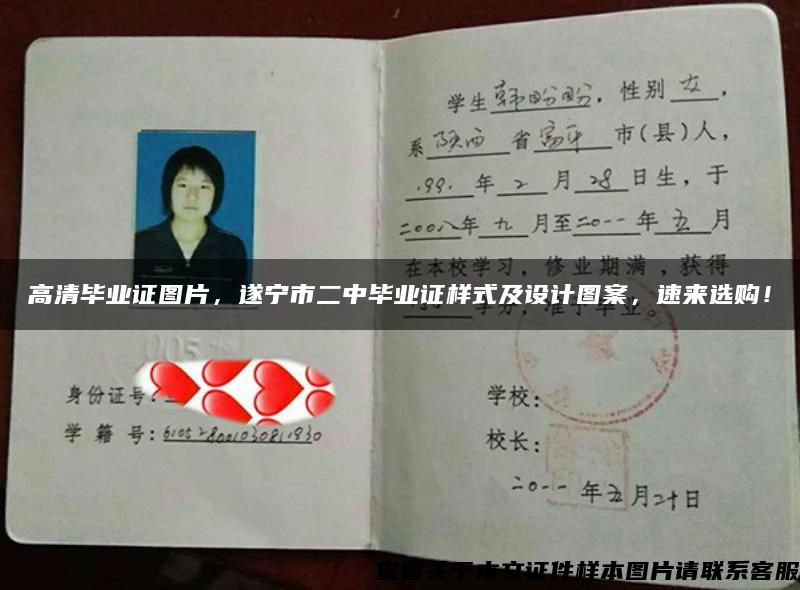 学生韩盼盼，性别女，
系陕西省富平市(县)人，
1991年2月28日生，于
二00八年九月至二0一一年五月
在本校学习，修业期满，获得
高清毕业证图片，遂宁市二中毕业证样式及设计图案，速来选购！
学分，准予毕业。
005
身份证号：
学籍号：
学校：
校长：
二0一一年五月二十日
查看关于本文证件样本图片请联系客服